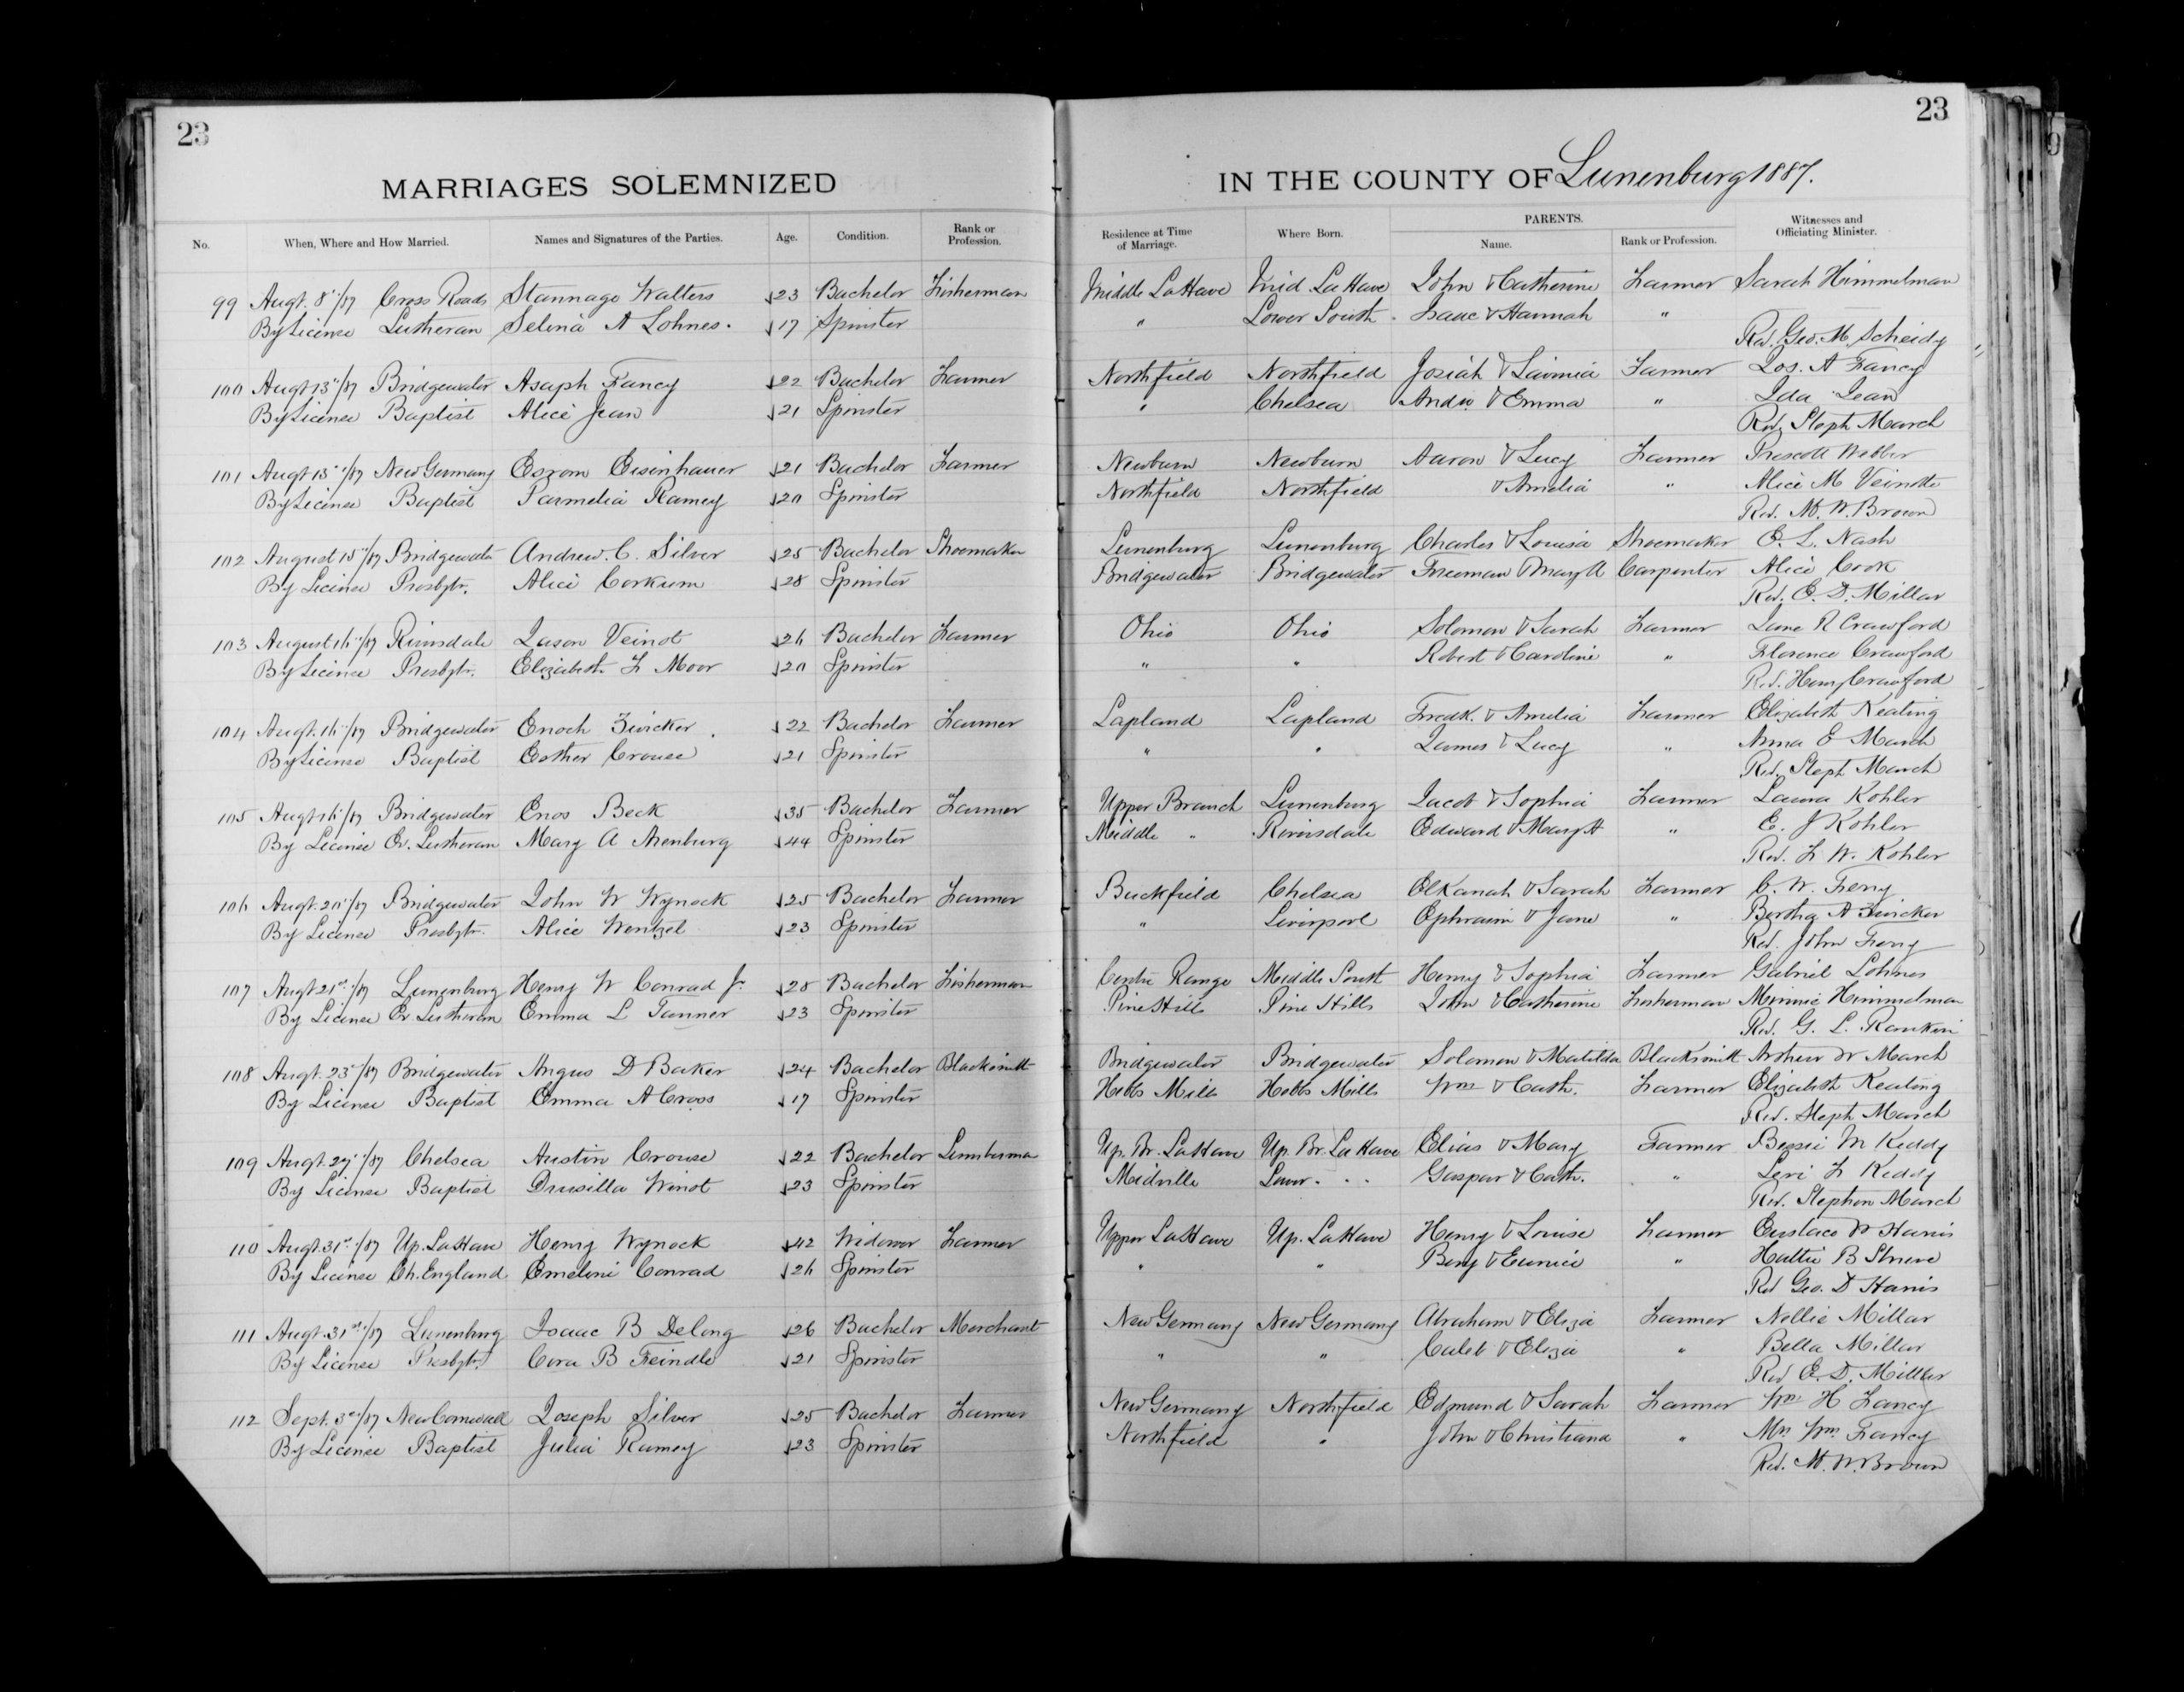 23
23
MARRIAGES SOLEMNIZED IN THE COUNTY OF Lunenburg 1887.
No. When, Where and How Married. Names and Signatures of the Parties. Age. Condition. Rank or Profession. Residence at Time of Marriage. Where Born. PARENTS. Name. Rank or Profession. Witnesses and Officiating Minister.
99 Augt. 8"/87 Cross Roads Stannage Walters 23 Bachelor Fisherman Middle LaHave Mid LaHave John & Catherine Farmer Sarah Himmelman
By License Lutheran Selena A Lohnes. 17 Spinster " Lower South Isaac & Hannah "
Rev. Geo. M. Scheidy
100 Augt 13"/87 Bridgewater Asaph Fancy 22 Bachelor Farmer Northfield Northfield Josiah & Lavinia Farmer Jos. A Fancy
By License Baptist Alice Jean 21 Spinster " Chelsea Andw & Emma " Ida Jean
Rev. Steph March
101 Augt 13"/87 New Germany Esrom Eisenhauer 21 Bachelor Farmer Newburn Newburn Aaron & Lucy Farmer Prescott Webber
By License Baptist Parmelia Ramey 20 Spinster Northfield Northfield & Amelia " Alice M Veinotte
Rev. M. W. Brown
102 August 15"/87 Bridgewater Andrew. C. Silver 25 Bachelor Shoemaker Lunenburg Lunenburg Charles & Louisa Shoemaker E. L. Nash
By License Presbytr. Alice Corkum 28 Spinster Bridgewater Bridgewater Freeman & Mary A Carpenter Alice Cook
Rev. E. D. Millar
103 August 16"/87 Riversdale Jason Veinot 26 Bachelor Farmer Ohio Ohio Solomon & Sarah Farmer Jane R Crawford
By License Presbytr. Elizabeth F Moor 20 Spinster " " Robert & Caroline " Florence Crawford
Rev. Henry Crawford
104 Augt. 16"/87 Bridgewater Enoch Zwicker 22 Bachelor Farmer Lapland Lapland Fredk. & Amelia Farmer Elizabeth Keating
By License Baptist Esther Crouse 21 Spinster " " James & Lucy " Anna E March
Rev. Steph March
105 Augt 16"/87 Bridgewater Enos Beck 35 Bachelor Farmer Upper Branch Lunenburg Jacob & Sophia Farmer Laura Kohler
By License Ev. Lutheran Mary A Arenburg 44 Spinster Middle " Riversdale Edward & Mary A " E. J Kohler
Rev. F W. Kohler
106 Augt. 20"/87 Bridgewater John W Wynock 25 Bachelor Farmer Buckfield Chelsea Elkanah & Sarah Farmer C. W. Ferry
By License Presbytr. Alice Wentzel 23 Spinster " Liverpool Ephraim & Jane " Bertha A Zwicker
Rev. John Ferry
107 Augt 21st/87 Lunenburg Henry W Conrad Jr. 28 Bachelor Fisherman Centre Range Middle South Henry & Sophia Farmer Gabriel Lohnes
By License Ev Lutheran Emma L Tanner 23 Spinster Pine Hills Pine Hills John & Catherine Fisherman Minnie Himmelman
Rev. G. L. Rankin
108 Augt. 23"/87 Bridgewater Angus D Baker 24 Bachelor Blacksmith Bridgewater Bridgewater Solomon & Matilda Blacksmith Arthur W March
By License Baptist Emma A Cross 17 Spinster Hebbs Mills Hebbs Mills Wm & Cath. Farmer Elizabeth Keating
Rev. Steph March
109 Augt. 27"/87 Chelsea Austin Crouse 22 Bachelor Lumberman Up. Br. LaHave Up. Br. LaHave Elias & Mary Farmer Bessie M Keddy
By License Baptist Drusilla Winot 23 Spinster Midville Lower " " Gaspar & Cath. " Levi F Keddy
Rev. Stephen March
110 Augt. 31st/87 Up. LaHave Henry Wynock 42 Widower Farmer Upper LaHave Up. LaHave Henry & Louise Farmer Eustace W Harris
By License Ch. England Emeline Conrad 26 Spinster " " Benj & Eunice " Hattie B Shreve
Rev Geo. D Harris
111 Augt. 31st/87 Lunenburg Isaac B DeLong 26 Bachelor Merchant New Germany New Germany Abraham & Eliza Farmer Nellie Millar
By License Presbytr. Cora B Feindle 21 Spinster " " Caleb & Eliza " Bella Millar
Rev E. D. Millar
112 Sept. 3rd/87 New Cornwall Joseph Silver 25 Bachelor Farmer New Germany Northfield Edmund & Sarah Farmer Wm H Fancy
By License Baptist Julia Ramey 23 Spinster Northfield " John & Christiana " Mrs Wm Fancy
Rev. M. W. Brown